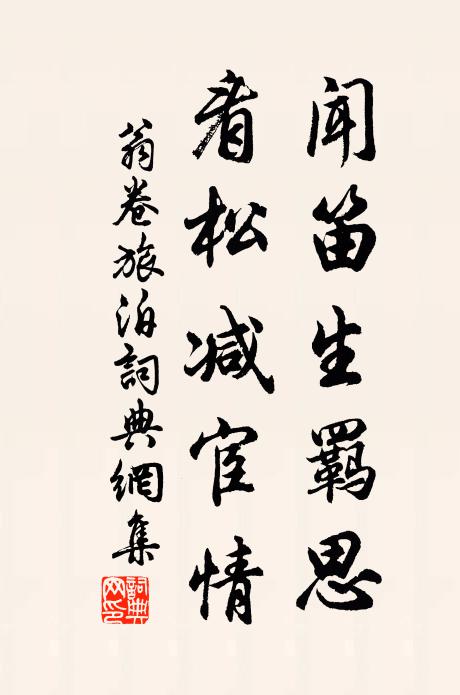 闻笛生羁思
看松减宦情
翁卷旅泊詞典網集
詞典网印